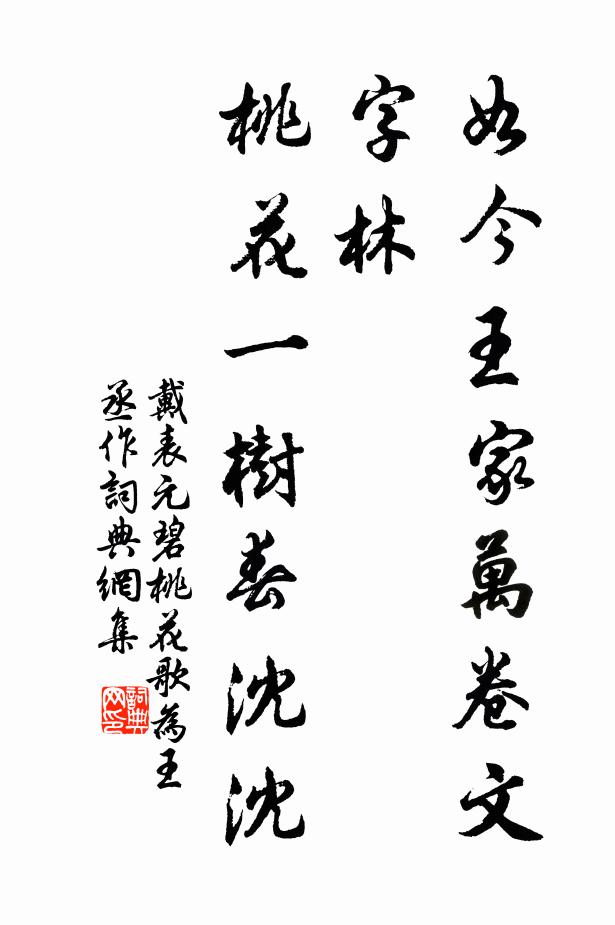 如今王家萬卷文
字林
桃花一樹春沈沈
戴表元碧桃花歌為王
丞作詞典網集
詞典
网印